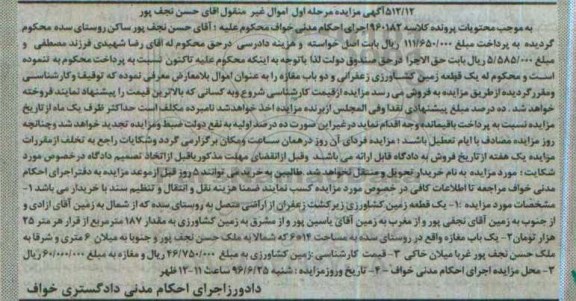 ۵۱۲/۱۲آگهی مزایده مرحله اول اموال غیر منقول آقای حسن نجف پور
به موجب محتویات پرونده کلاسه ۹۶۰۱۸۳ اجرای احکام مدنی خواف محکوم علیه : آقای حسن نجف پور ساکن روستای سده محکوم
گردیده به پرداخت مبلغ ۱۱۱/۶۵۰/۰۰۰ ریال بابت اصل خواسته و هزینه دادرسی درحق محکوم له آقای رضا شهیدی فرزند مصطفی و
۵/۵۸۵/۰۰۰ ریال بابت حق الاجرا در حق صندوق دولت لذا با توجه به اینکه محکوم علیه تاکنون نسبت به پرداخت محکوم به نتموده
است و محکوم له یک قطعه زمین کشاورزی زعفرانی و دو باب مغازه را به عنوان اموال بلامعارض معرفی نموده که توقیف وکارشناسی
ومقررگردیده از طریق مزایده به فروش می رسد مزایده ازقیمت کارشناسی شروع وبه کسانی که بالاترین قیمت را پیشنهاد نمایند فروخته
خواهد شد . ده درصد مبلغ پیشنهادی نقدا وفی المجلس ازبرنده مزایده اخذ خواهدشد نامبرده مکلف است حداکثر ظرف یک ماه از تاریخ
مزایده نسبت به پرداخت باقیمانده وجه اقدام نماید درغیراین صورت ده درصد اولیه به نفع دولت ضبط ومزایده تجدید خواهد شد وچنانچه
روز مزایده مصادف با ایام تعطیل باشند : مزایده فردای آن روز در همان ساعت ومکان برگزار می گردد وشکایات راجع به تخلف ازمقررات
مزایده یک هفته از تاریخ فروش به دادگاه قابل ارائه می باشید وقبل ازانقضای مهلت مذکور یاقبل ازاتخاذ تصمیم دادگاه در خصوص مورد
شکایت : مورد مزایده به نام خریدار تحویل ومنتقل نخواهد شد. طالبین به خرید می توانند ۵ روز قبل ازموعد مزایده به دفتر اجرای احکام
مدنی خواف مراجعه تا اطلاعات کافی در خصوص مورد مزایده کسب نمایند ضمنا هزینه نقل و انتقال و تنظیم سند با خریدار می باشد ۱-
مشخصات مورد مزایده : ۱- یک قطعه زمین کشاورزی زیرکشت زعفران از اراضی متصل به روستای سده که از شمال به زمین آقای ازادی و
از جنوب به زمین آقای نجفی پور و از مغرب به زمین آقای یاسین پور و از مشرق به زمین کشاورزی به مقدار ۱۸۷ مترمربع از قرار هر متر ۲۵
هزار تومان۲- یک باب مغازه واقع در روستای سده به مساحت ۶۰۱۴ که شمالا به ملک حسن نجف پور و جنوبا به میلان ۶ متری و شرقا به
ملک حسن نجف پور غربا میلان خاکی ۳- قیمت کارشناسی زمین کشاورزی به مبلغ ۴۶/۷۵۰/۰۰۰ ریال و مغازه به مبلغ ۶۰/۰۰۰/۰۰۰ ریال
۳- محل مزایده اجرای احکام مدنی خواف - ۴- تاریخ وروز مزایده : شنبه ۹۶/۶/۲۵ ساعت ۱۱-۱۲ ظهر
دادورز اجرای احکام مدنی دادگستری خواف